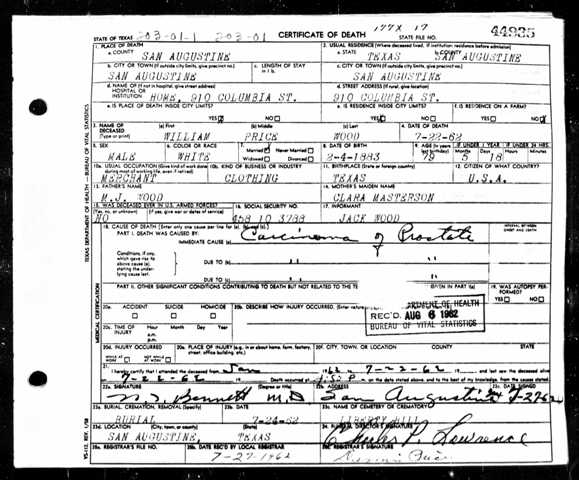 STATE OF TEXAS 203-01-1 203-01 CERTIFICATE OF DEATH 177X 17 STATE FILE NO. 44935
1. PLACE OF DEATH 2. USUAL RESIDENCE (Where deceased lived, if institution: residence before admission)
a. COUNTY SAN AUGUSTINE a. STATE TEXAS b. COUNTY SAN AUGUSTINE
b. CITY OR TOWN (If outside city limits, give precinct no.) c. LENGTH OF STAY in 1 b. c. CITY OR TOWN (If outside city limits, give precinct no.)
SAN AUGUSTINE SAN AUGUSTINE
d. NAME OF (If not in hospital, give street address) HOSPITAL OR INSTITUTION HOME, 910 COLUMBIA ST. d. STREET ADDRESS (If rural, give location) 910 COLUMBIA ST.
e. IS PLACE OF DEATH INSIDE CITY LIMITS? YES NO e. IS RESIDENCE INSIDE CITY LIMITS? YES NO f. IS RESIDENCE ON A FARM? YES NO
3. NAME OF DECEASED (Type or print) (a) First (b) Middle (c) Last 4. DATE OF DEATH
WILLIAM PRICE WOOD 7-22-62
5. SEX 6. COLOR OR RACE 7. Married Never Married Widowed Divorced 8. DATE OF BIRTH 9. AGE (In years last birthday) IF UNDER 1 YEAR IF UNDER 24 HRS. Months Days Hours Minutes
MALE WHITE 2-4-1883 79 5 18
10a. USUAL OCCUPATION (Give kind of work done during most of working life, even if retired) 10b. KIND OF BUSINESS OR INDUSTRY 11. BIRTHPLACE (State or foreign country) 12. CITIZEN OF WHAT COUNTRY?
MERCHANT CLOTHING TEXAS U.S.A.
13. FATHER'S NAME 14. MOTHER'S MAIDEN NAME
M.J. WOOD CLARA MASTERSON
15. WAS DECEASED EVER IN U.S. ARMED FORCES? (Yes, no, or unknown) (If yes, give war or dates of service) 16. SOCIAL SECURITY NO. 17. INFORMANT
NO 458 10 3788 JACK WOOD
18. CAUSE OF DEATH [Enter only one cause per line for (a), (b), and (c).]
PART I. DEATH WAS CAUSED BY: IMMEDIATE CAUSE (a) Carcinoma of Prostate
Conditions, if any, which gave rise to above cause (a), stating the underlying cause last. DUE TO (b) " "
DUE TO (c) " "
PART II. OTHER SIGNIFICANT CONDITIONS CONTRIBUTING TO DEATH BUT NOT RELATED TO THE GIVEN IN PART I (a) 19. WAS AUTOPSY PERFORMED? YES NO
20a. ACCIDENT SUICIDE HOMICIDE 20b. DESCRIBE HOW INJURY OCCURRED. (Enter nature
DEPARTMENT OF HEALTH
REC'D. AUG 6 1962
BUREAU OF VITAL STATISTICS
20c. TIME OF INJURY Hour Month Day Year a.m. p.m.
20d. INJURY OCCURRED WHILE AT WORK NOT WHILE AT WORK 20e. PLACE OF INJURY (e.g. in or about home, farm, factory, street, office building, etc.) 20f. CITY, TOWN, OR LOCATION COUNTY STATE
21. I hereby certify that I attended the deceased from Jan 1962 7-22-62 and last saw the deceased alive
7-22-62 Death occurred at on the date stated above, and to the best of my knowledge, from the causes stated.
22a. SIGNATURE (Degree or title) 22b. ADDRESS 22c. DATE SIGNED
Bennett M.D. San Augustine
23a. BURIAL, CREMATION, REMOVAL (Specify) 23b. DATE 23c. NAME OF CEMETERY OR CREMATORY
BURIAL 7-24-62 LIBERTY HILL
23d. LOCATION (City, town, or county) (State) 24. FUNERAL DIRECTOR'S SIGNATURE
SAN AUGUSTINE, TEXAS Charles P. Lawrence
25a. REGISTRAR'S FILE NO. 25b. DATE REC'D BY LOCAL REGISTRAR 25c. REGISTRAR'S SIGNATURE
7-27-1962
TEXAS DEPARTMENT OF HEALTH — BUREAU OF VITAL STATISTICS
MEDICAL CERTIFICATION
INTERVAL BETWEEN ONSET AND DEATH